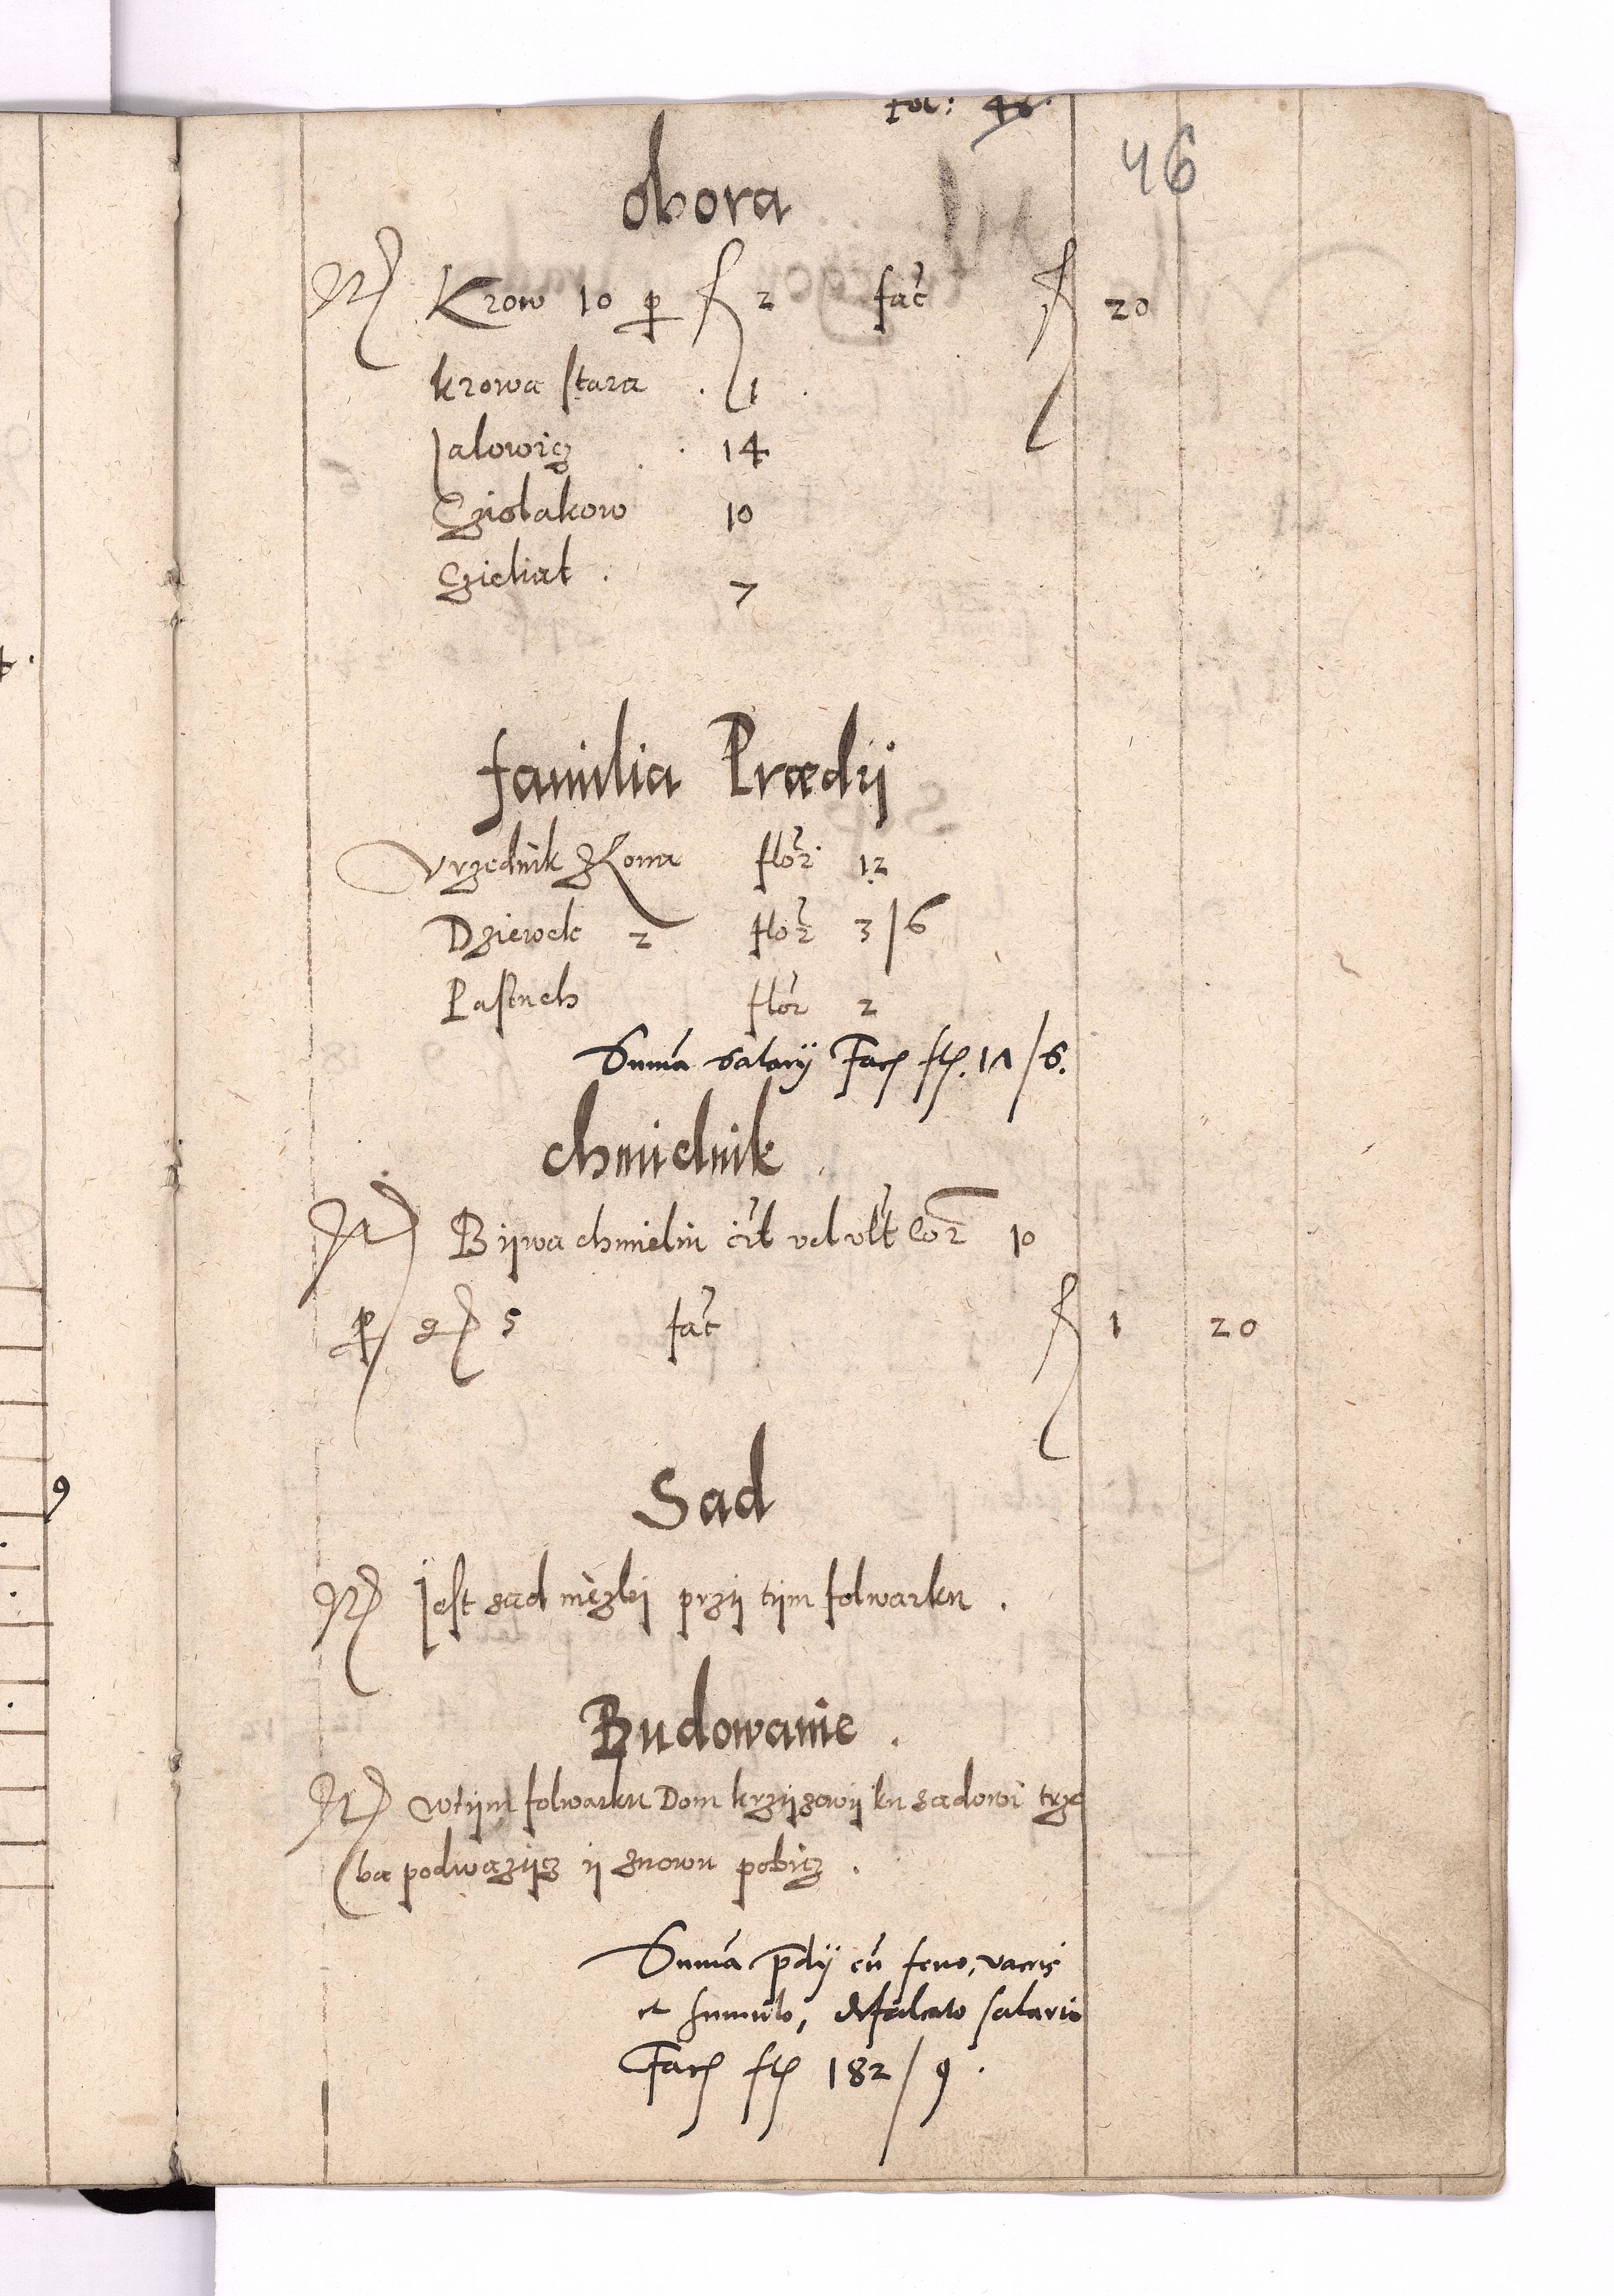 fol: 46
46
obora
Krow 10 p fl 2 fac̃ fl 20
krowa stara . 1 .
Jalowicz . 14
Cziolakow 10
Czieliat . 7
familia Prædij
Vrzednik z Kona flor̃ 12
Dziewek 2 flor̃ 3/6
Pastuch flor̃ 2
Sum̃a salarij Fac fl. 17/6.
chmielnik
Bijwa chmieliu cir̃ vel vlt̃ cor̃ 10
p g 5 fac̃ fl 1 20
Sad
Jest sad niezlij przij tijm folwarku .
Budowanie .
wtijm folwarku Dom krzijzowij ku sadowi trze
ba podwazijcz ij znowu pobicz .
Sum̃a p̃dij cũ feno, vaccis
et humulo, defalcato salario
Fac fl 182/9 .